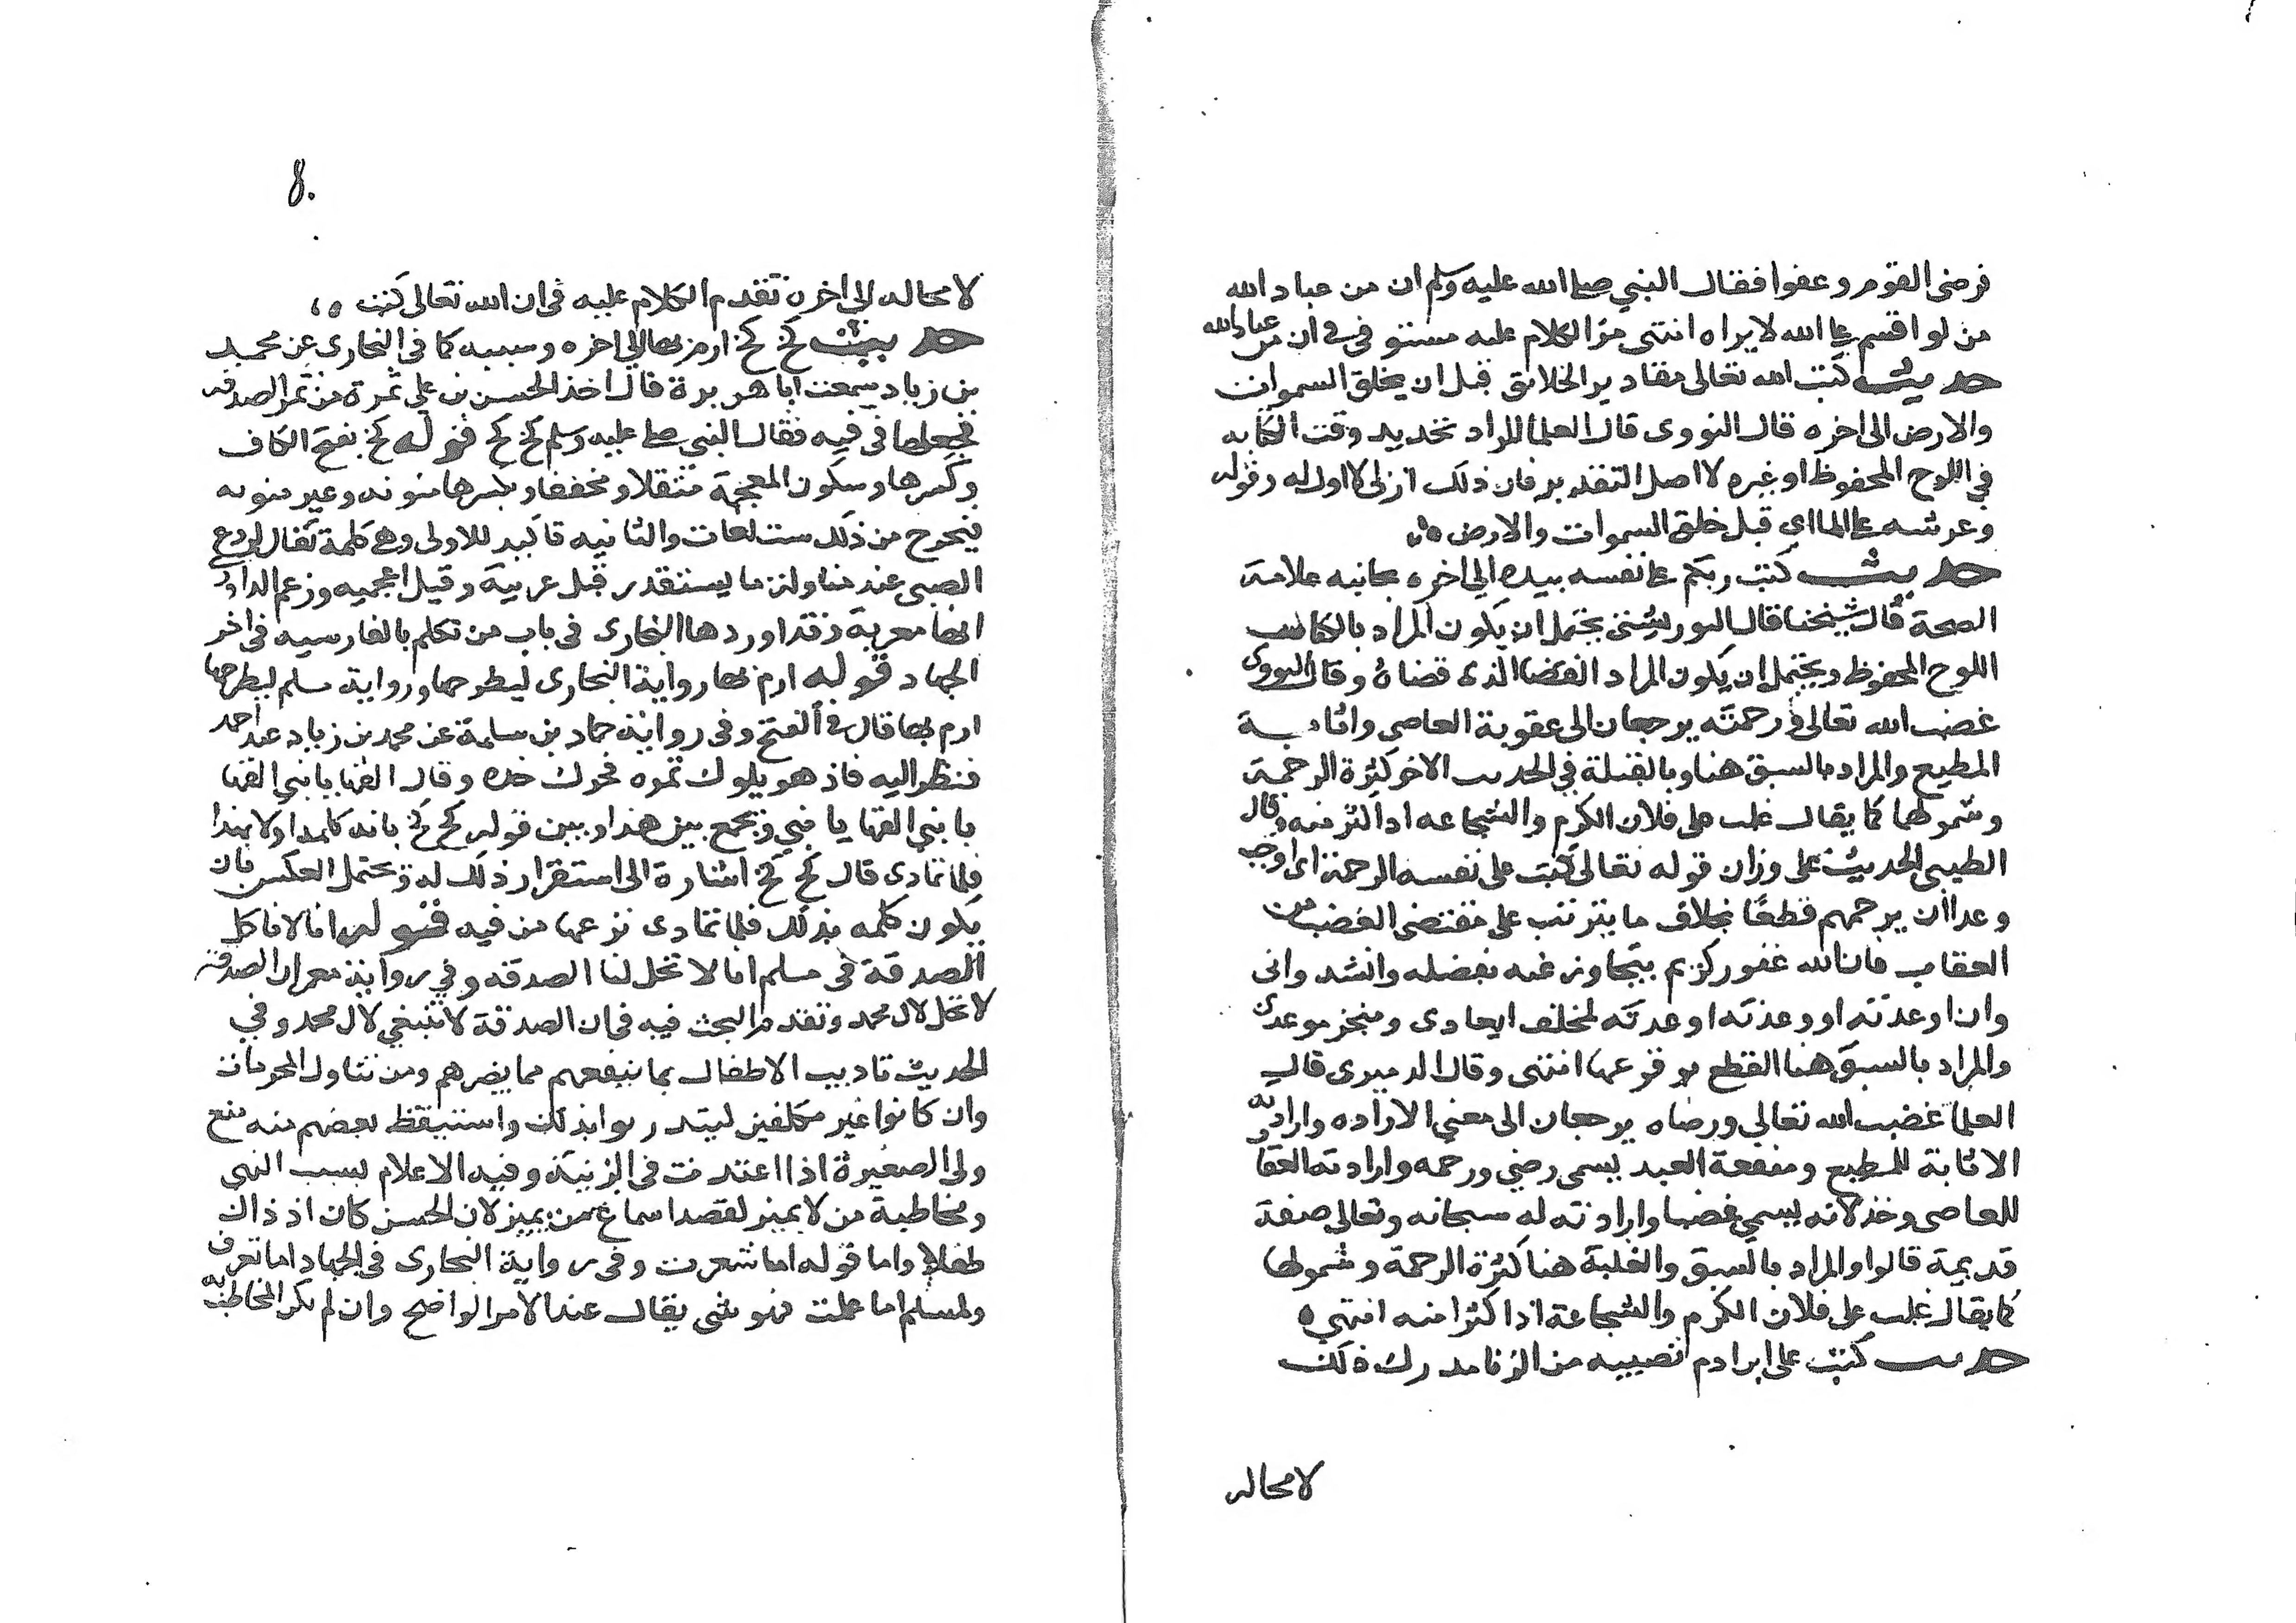 فرضى القوم وعفوا فقال النبي صلى الله عليه وسلم ان من عباد الله
من لو اقسم على الله لابراه انتهى مر الكلام عليه مستوفى في ان من عباد الله
حديث كتب الله تعالى مقادير الخلائق قبل ان يخلق السموات
والارض الى اخره قال النووى قال العلما المراد تحديد وقت الكتابه
في اللوح المحفوظ او غيره لا اصل التقدير فان ذلك ازلى لا اول له وقوله
وعرشه على الما اي قبل خلق السموات والارض ه
حديث كتب ربكم على نفسه بيده الى اخره بجانبه علامة
الصحة قال شيخنا قال التوربشتى يحتمل ان يكون المراد بالكتاب
اللوح المحفوظ ويحتمل ان يكون المراد القضا الذى قضاه وقال النووى
غضب الله تعالى ورحمته يرجعان الى عقوبة العاصى واثابة
المطيع والمراد بالسبق هنا وبالغلبة في الحديث الاخر كثرة الرحمة
وشمولها كما يقال غلب على فلان الكرم والشجاعه اذا كثر منه وقال
الطيبى الحديث على وزان قوله تعالى كتب على نفسه الرحمة اى اوجب
وعدا ان يرحمهم قطعًا بخلاف ما يترتب على مقتضى الغضب من
العقاب فان الله غفور كريم يتجاوز عنه بفضله وانشد وانى
وان اوعدته او وعدته اوعدته لمخلف ايعادى ومنجز موعدى
والمراد بالسبق هنا القطع بوقوعها انتهى وقال الدميرى قال
العلما غضب الله تعالى ورضاه يرجعان الى معني الاراده وارادته
الاثابة للمطيع ومنفعة العبد يسمى رضي ورحمه وارادته العقاب
للعاصى وخذلانه يسمي غضبا وارادته له سبحانه وتعالى صفة
قديمة قالوا والمراد بالسبق والغلبة هنا كثرة الرحمة وشمولها
كما يقال غلب على فلان الكرم والشجاعة اذا كثرا منه انتهي ه
حديث كتب على ابن ادم نصيبه من الزنا مدرك ذلك
لا محاله
8.
لا محاله الى اخره تقدم الكلام عليه في ان الله تعالى كتب ه
حديث كخ كخ ارم بها الى اخره وسببه كما في البخارى عن محمد
بن زياد سمعت ابا هريرة قال اخذ الحسن بن علي تمرة من تمر الصدقة
فجعلها في فيه فقال النبي صلى عليه وسلم كخ كخ قوله كخ بفتح الكاف
وكسرها وسكون المعجمة مثقلا ومخففا وبكسرها منونه وغير منونه
فيخرج من ذلك ست لغات والثانيه تاكيد للاولى وهى كلمة تقال لردع
الصبى عند تناوله ما يستقذر قيل عربية وقيل اعجميه وزعم الداودى
انها معربة وقد اوردها البخارى في باب من تكلم بالفارسيه في اخر
الجهاد قوله ارم بها رواية البخارى ليطرحها ورواية مسلم ليطرحها
ارم بها قال في الفتح وفى رواية حماد بن سلمة عن محمد بن زياد عند احمد
فنظر اليه فاذا هو يلوك تمره فحرك خده وقال القها يا بني القها
يا بني القها يا بني ويجمع بين هذا وبين قوله كخ كخ بانه كلمه اولا بهذا
فلما تمادى قال كخ كخ اشارة الى استقذار ذلك له ويحتمل العكس بان
يكون كلمه بذلك فلما تمادى نزعها من فيه قوله انا لا ناكل
الصدقة في مسلم انا لا تحل لنا الصدقه وفي رواية معمر ان الصدقة
لا تحل لال محمد وتقدم البحث فيه في ان الصدقة لا تنبغي لال محمد وفي
الحديث تاديب الاطفال بما ينفعهم مما يضرهم ومن تناول المحرمات
وان كانوا غير مكلفين ليتدربوا بذلك واستنبط بعضهم منه منع
ولى الصغيرة اذا اعتدت في الزينة وفيه الاعلام بسبب النهى
ومخاطبة من لا يميز لقصد اسماع من يميز لان الحسن كان اذ ذاك
طفلا واما قوله اما شعرت وفى رواية البخارى في الجهاد اما تعرف
ولمسلم اما علمت فهو شى يقال عند الامر الواضح وان لم يكن المخاطب